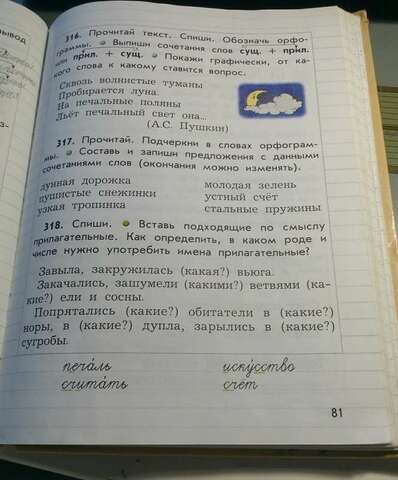 вывод
316. Прочитай текст. Спиши. Обозначь орфо-
граммы. Выпиши сочетания слов сущ. + прил.
или прил. + сущ. Покажи графически, от ка-
кого слова к какому ставится вопрос.
Сквозь волнистые туманы
Пробирается луна.
На печальные поляны
Льёт печальный свет она...
(А.С. Пушкин)
317. Прочитай. Подчеркни в словах орфограм-
мы. Составь и запиши предложения с данными
сочетаниями слов (окончания можно изменять).
лунная дорожка молодая зелень
пушистые снежинки устный счёт
узкая тропинка стальные пружины
318. Спиши. Вставь подходящие по смыслу
прилагательные. Как определить, в каком роде и
числе нужно употребить имена прилагательные?
Завыла, закружилась (какая?) вьюга.
Закачались, зашумели (какими?) ветвями (ка-
кие?) ели и сосны.
Попрятались (какие?) обитатели в (какие?)
норы, в (какие?) дупла, зарылись в (какие?)
сугробы.
печа́ль иску́сство
счита́ть счёт
81